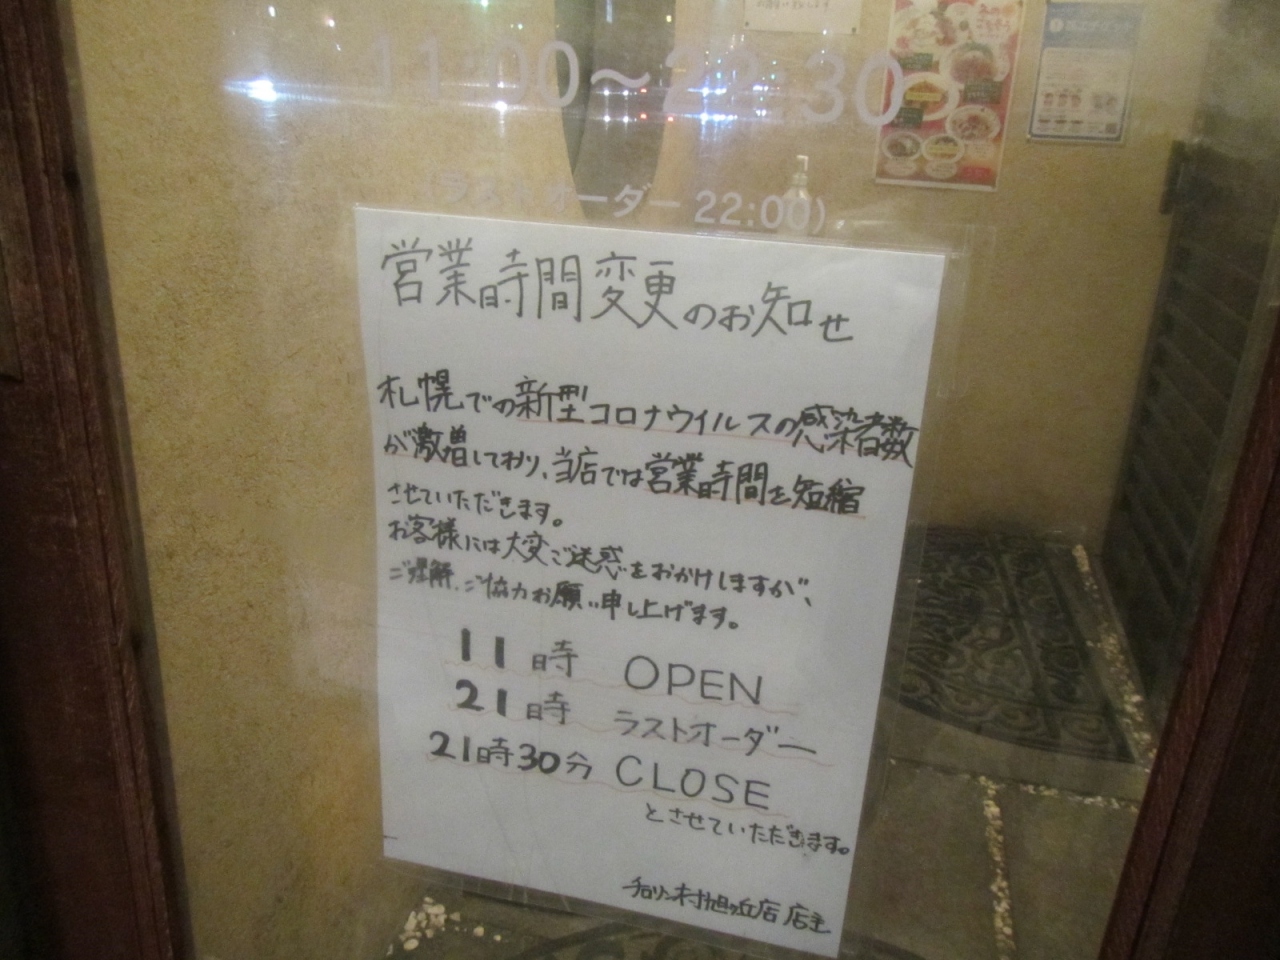 11:00～22:30
(ラストオーダー 22:00)
営業時間変更のお知らせ
札幌での新型コロナウイルスの感染者数
が激増しており、当店では営業時間を短縮
させていただきます。
お客様には大変ご迷惑をおかけしますが、
ご理解、ご協力お願い申し上げます。
11時 OPEN
21時 ラストオーダー
21時30分 CLOSE
とさせていただきます。
チロリン村旭ヶ丘店 店主